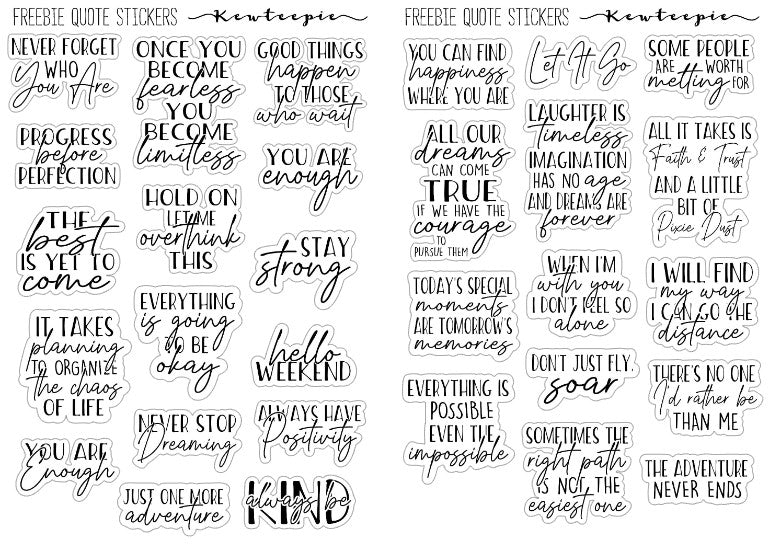 FREEBIE QUOTE STICKERS Kewteepie
NEVER FORGET
WHO
You Are
PROGRESS
before
PERFECTION
THE
best
IS YET TO
come
IT TAKES
planning
TO ORGANIZE
the chaos
OF LIFE
YOU ARE
Enough
ONCE YOU
BECOME
fearless
YOU
BECOME
limitless
HOLD ON
LET ME
overthink
THIS
EVERYTHING
is going
TO BE
okay
NEVER STOP
Dreaming
JUST ONE MORE
adventure
GOOD THINGS
happen
TO THOSE
who wait
YOU ARE
enough
STAY
strong
hello
WEEKEND
ALWAYS HAVE
Positivity
always be
KIND
FREEBIE QUOTE STICKERS Kewteepie
YOU CAN FIND
happiness
WHERE YOU ARE
ALL OUR
dreams
CAN COME
TRUE
IF WE HAVE THE
courage
TO
PURSUE THEM
TODAY'S SPECIAL
moments
ARE TOMORROW'S
memories
EVERYTHING IS
POSSIBLE
EVEN THE
impossible
Let It Go
LAUGHTER IS
timeless
IMAGINATION
HAS NO age
AND DREAMS ARE
forever
WHEN I'M
with you
I DON'T FEEL SO
alone
DON'T JUST FLY,
soar
SOMETIMES THE
right path
IS NOT THE
easiest one
SOME PEOPLE
ARE WORTH
melting FOR
ALL IT TAKES IS
Faith & Trust
AND A LITTLE
BIT OF
Pixie Dust
I WILL FIND
my way
I CAN GO THE
distance
THERE'S NO ONE
I'd rather be
THAN ME
THE ADVENTURE
NEVER ENDS